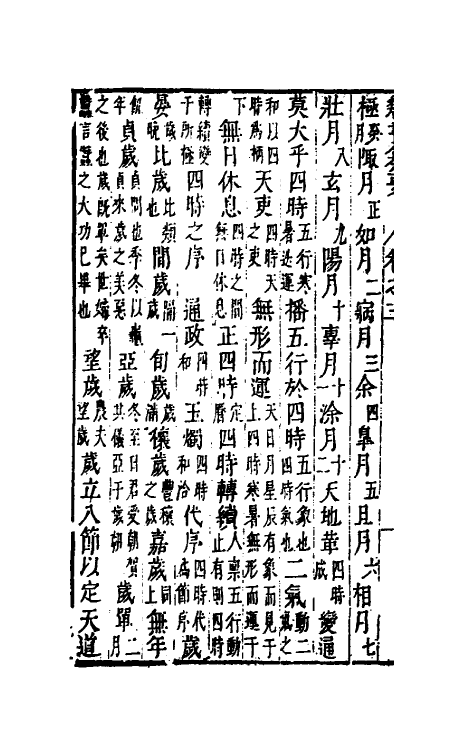 極癸月陬月正如月二病月三余四皐月五且月六相月七
壯月八玄月九陽月十辜月十一涂月十二天地革四時成變通
莫大乎四時五行寒暑迭運播五行於四時五行象也四時氣也二氣動二氣之
和以四時爲柄天吏四時天之吏無形而運天日月星辰有象而見于上四時寒暑無形而運于
下無日休息四時之間無日休息正四時定曆四時轉續人禀五行動止有則四時
轉續變于所極四時之序通政四時和玉燭四時和洽代序四時代爲節序歲
晏歲晚比歲比類也間歲隔一歲旬歲滿歲穰歲豐穰之歲嘉歲同上無年
饑年貞歲貞問也季冬以貞來歲之美惡亞歲冬至日君受朝賀其儀亞于歲朝歲單二月
之後也歲既單矣世婦卒蠶言蠶之大功已畢也望歲農夫望歲歲立八節以定天道